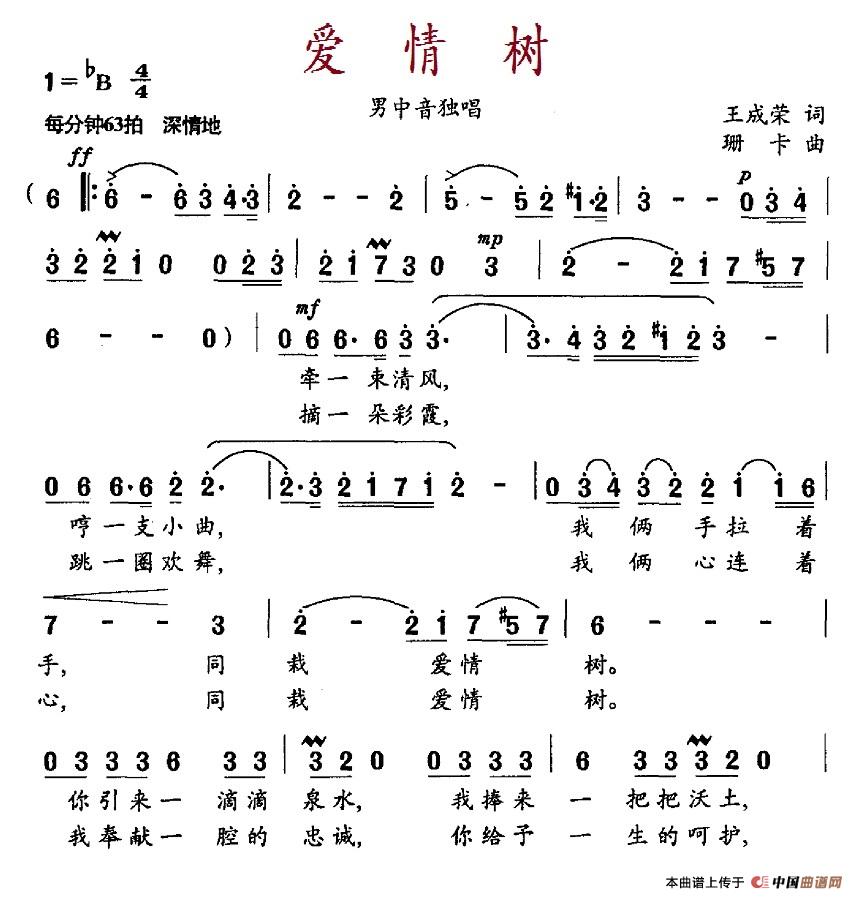 爱情树
1=♭B 4/4
男中音独唱
每分钟63拍 深情地
王成荣 词
珊卡 曲
ff
p
( 6 ‖: 6 - 6 3 4·3 | 2 - - 2 | 5 - 5 2 #1·2 | 3 - - 0 3 4 |
mp
3 2 2 1 0 0 2 3 | 2 1 7 3 0 3 | 2 - 2 1 7 #5 7 |
mf
6 - - 0 ) | 0 6 6· 6 3 3· | 3· 4 3 2 #1 2 3 - |
牵一束清风,
摘一朵彩霞,
0 6 6·6 2 2· | 2·3 2 1 7 1 2 - | 0 3 4 3 2 2 1 1 6 |
哼一支小曲, 我俩手拉着
跳一圈欢舞, 我俩心连着
7 - - 3 | 2 - 2 1 7 #5 7 | 6 - - - |
手, 同栽爱情树。
心, 同栽爱情树。
0 3 3 3 3 6 3 3 | 3 2 0 0 3 3 3 | 6 3 3 3 2 0 |
你引来一滴滴泉水, 我捧来一把把沃土,
我奉献一腔的忠诚, 你给予一生的呵护,
本曲谱上传于 中国曲谱网